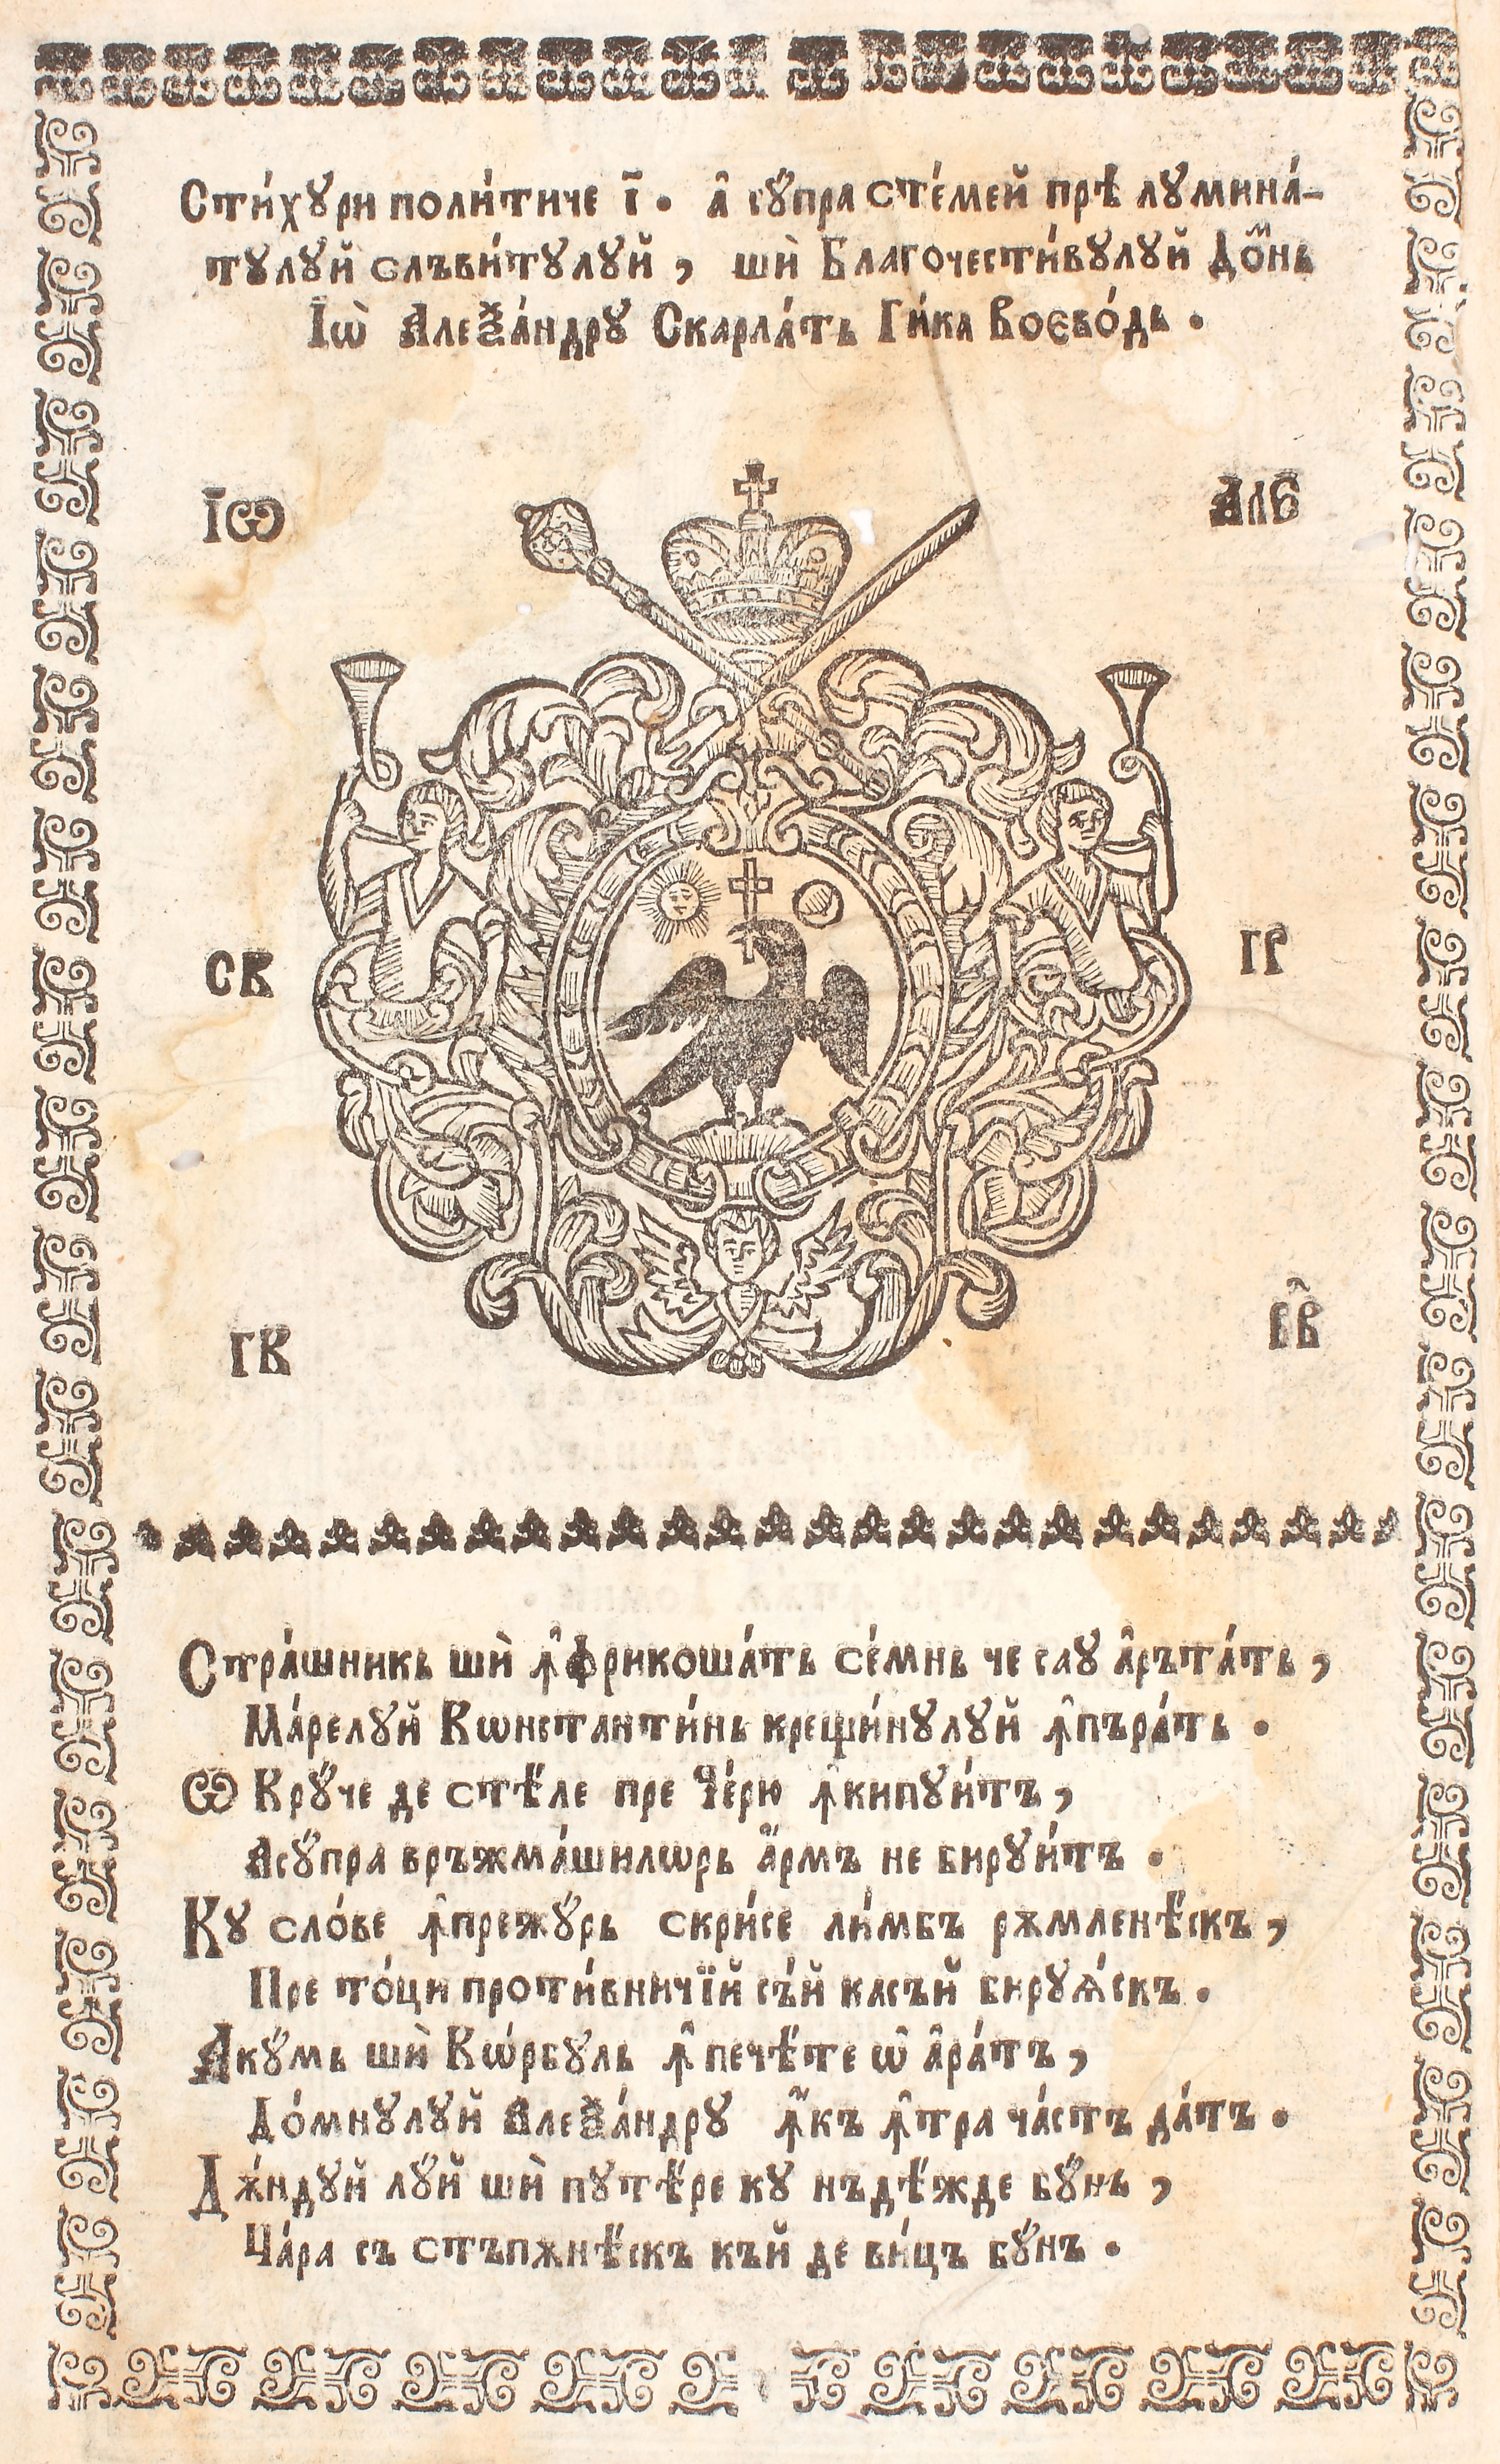 Сти́хꙋри поли́тиче і҃. а̂ сꙋ́пра сте́мей прѣ лꙋмина́-
тꙋлꙋй слъви́тꙋлꙋй, шѝ Благочести́вꙋлꙋй Доⷨнь
Іѡ̀ Алеѯа́ндрꙋ Скарла́ть Ги́ка Воєво́дь.
ІѾ АЛЄ
СВ ГГ
ГК ВВ̂
Стра́шникь шѝ ꙟ̂фрикоша́ть се́мнь че саꙋ а̂ръта́ть,
Ма́релꙋй Кѡнстанти́нь крещи́нꙋлꙋй ꙟ̂пъра́ть.
Ѡ Крꙋ́че де стѣ́ле пре Че́рю ꙟ̂кипꙋи́тъ,
Асꙋ́пра връжма́шилѡрь а҆́рмъ не бирꙋи́тъ.
Кꙋ сло́ве ꙟ̂прежꙋ́рь скри́се ли́мбъ рѫмленѣ́скъ,
Пре то́ци проти́вничїй съ́й касъй бирꙋѧ́скъ.
Акꙋ́мь шѝ Кѡ́рбꙋль ꙟ̂ печѣ́те ѡ̂ а̂ра́тъ,
До́мнꙋлꙋй Алеѯа́ндрꙋ ꙟ҆́къ ꙟ̂тра ча́стъ да́тъ.
Дѫ́ндꙋй лꙋ́й шѝ пꙋтѣ́ре кꙋ нъдѣ́жде бꙋ́нь,
Ца́ра съ стъпѫнѣ́скъ къй де ви́цъ бꙋ́нъ.